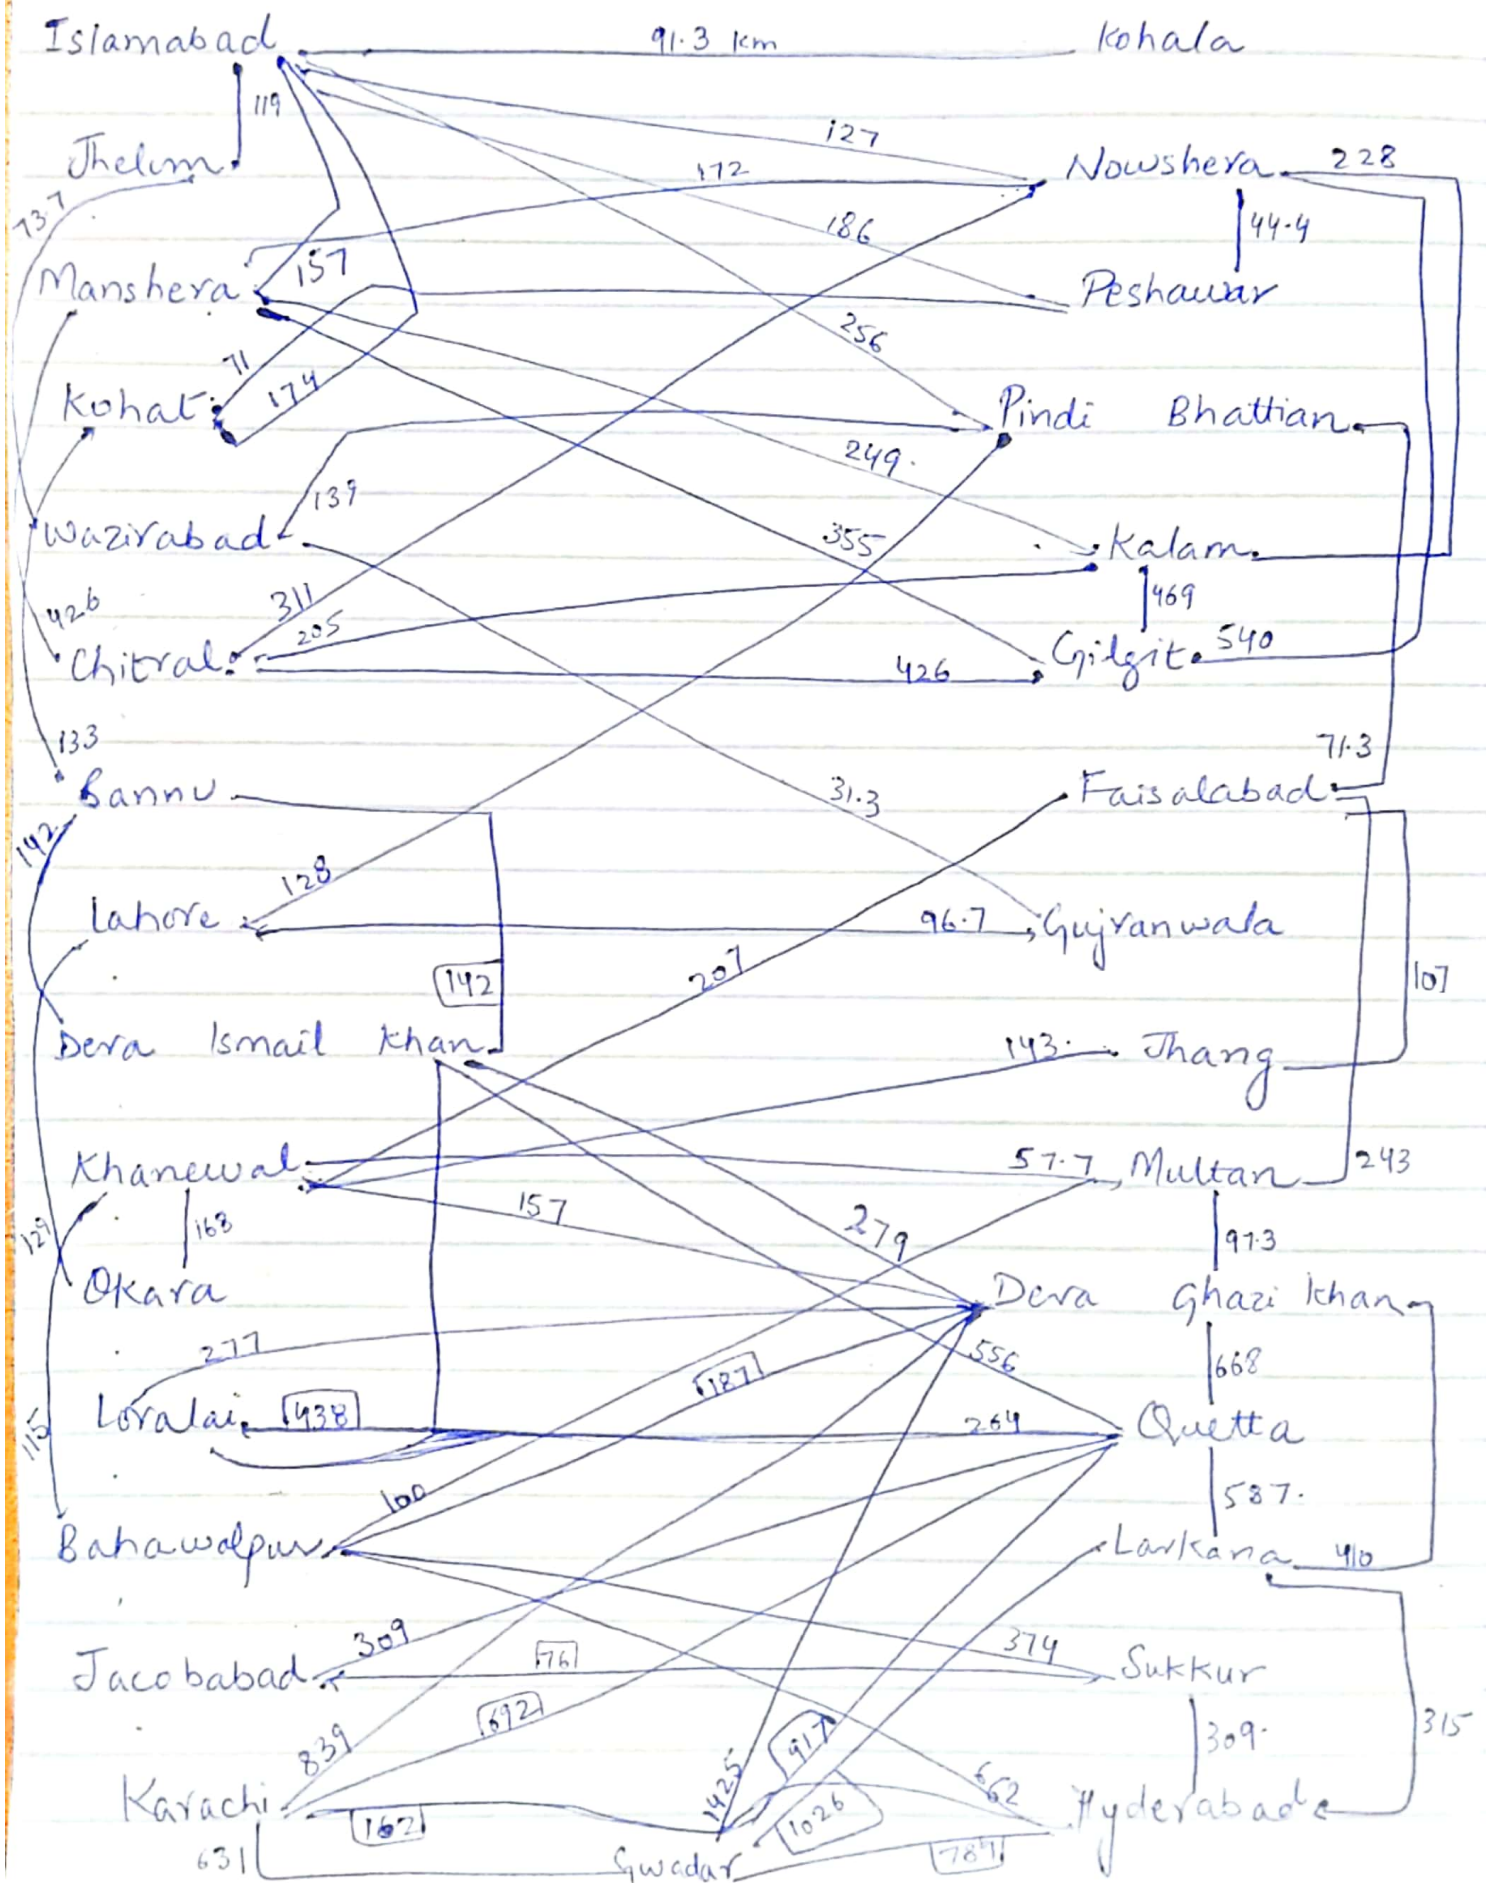 Islamabad 91.3 km Kohala
119
127
Jhelum 172 Nowshera 228
73.7 186 44.4
Manshera 157 Peshawar
256
71
Kohat 174 Pindi Bhattian
249.
139
Wazirabad 355 Kalam
426 311 469
205
Chitral 426 Gilgit 540
133 71.3
Bannu 31.3 Faisalabad
142
128
Lahore 96.7 Gujranwala
142 207 107
Dera Ismail Khan 143. Jhang
Khanewal 57.7 Multan 243
157 279
129 168 97.3
Okara Dera Ghazi Khan
277 556 668
187
Loralai 438 264 Quetta
115
100 587.
Bahawalpur Larkana 410
309 374
Jacobabad 761 Sukkur
692 917 309. 315
839 1425 662
Karachi 162 1026 Hyderabad
631 Gwadar